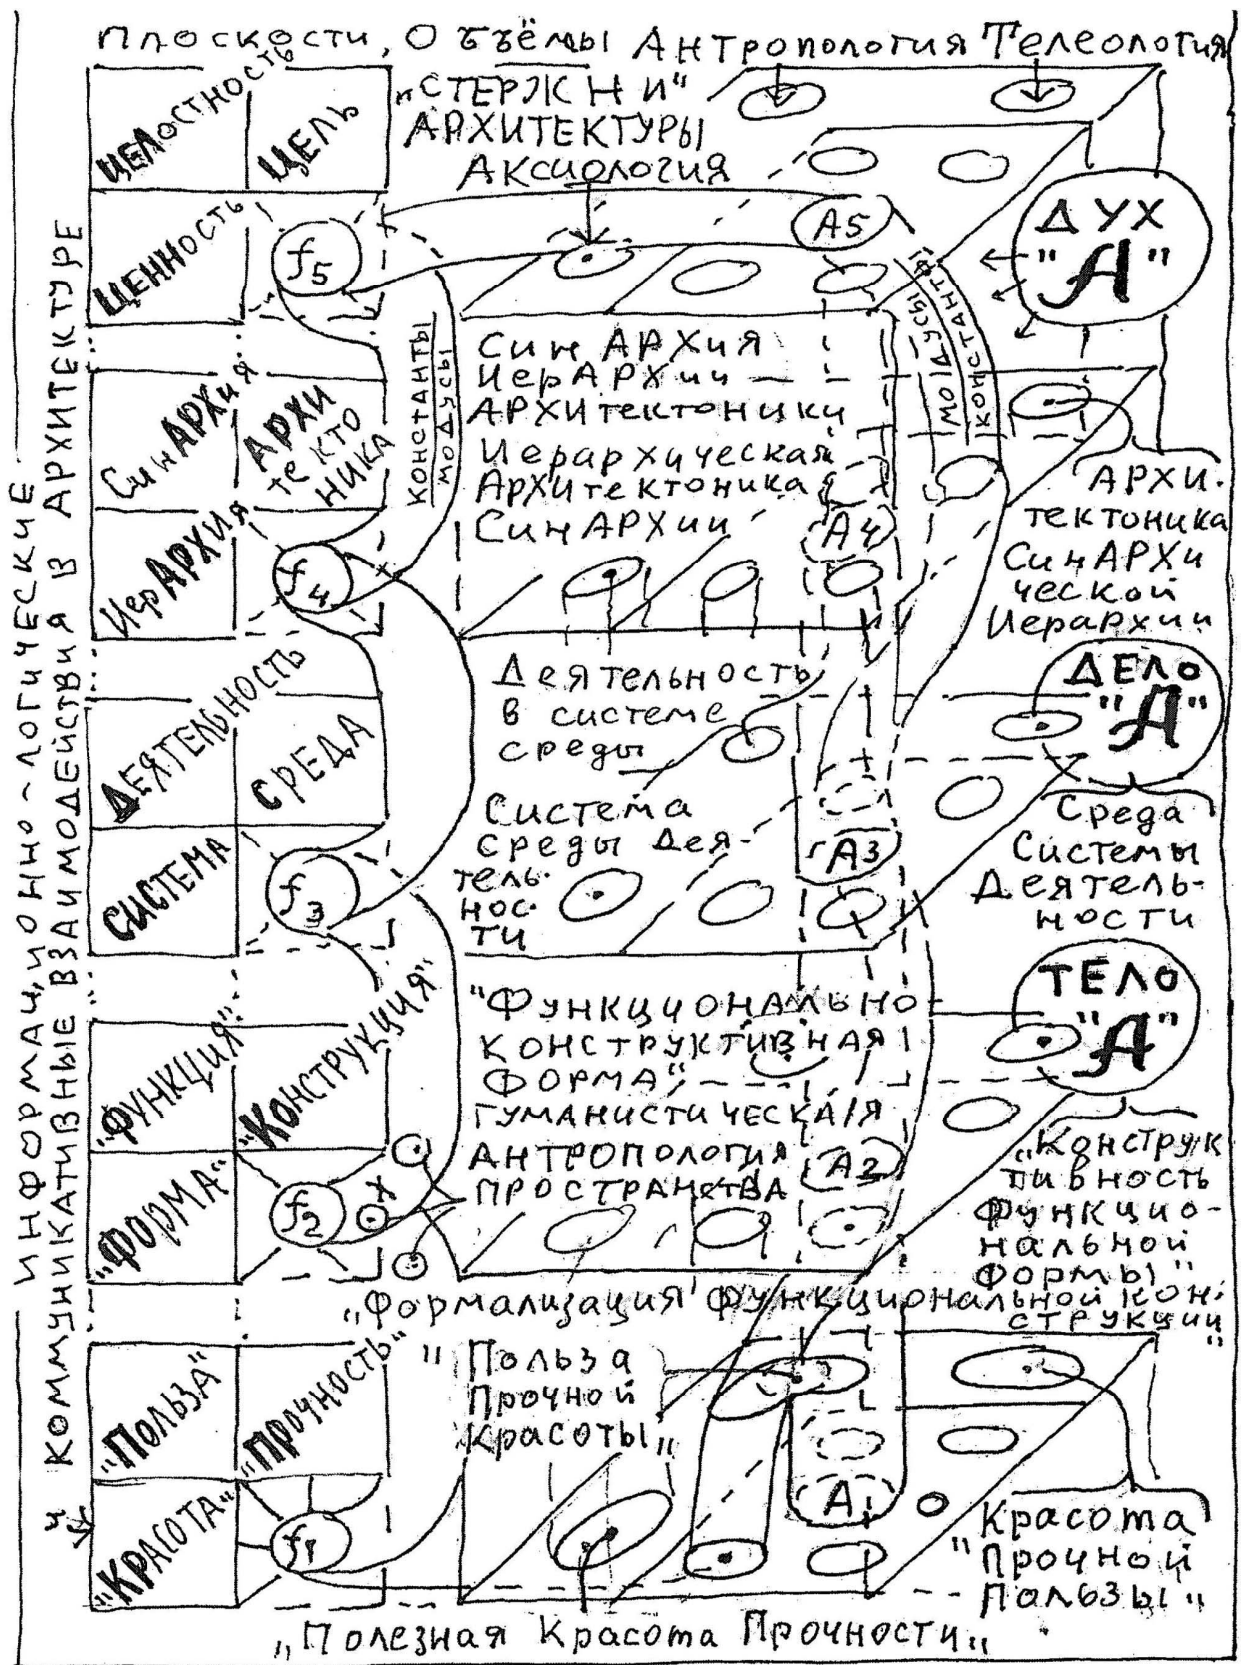 Плоскости, Объёмы Антропология Телеология
"СТЕРЖНИ"
АРХИТЕКТУРЫ
Аксиология
ИНФОРМАЦИОННО-ЛОГИЧЕСКИЕ
и КОММУНИКАТИВНЫЕ ВЗАИМОДЕЙСТВИЯ В АРХИТЕКТУРЕ
ЦЕЛОСТНОСТЬ
ЦЕЛЬ
ЦЕННОСТЬ
f5
А5
ДУХ
"А"
КОНСТАНТЫ
МОДУСЫ
МОДУСЫ
КОНСТАНТЫ
СинАРХия
АРХИ
текто
НИКА
ИерАРХИя
f4
СинАРХия
ИерАРХии
АРХИтектоники
Иерархическая
АРХИтектоника
СинАРХии
А4
АРХИ-
тектоника
СинАРХи
ческой
Иерархии
ДЕЯТЕЛЬНОСТЬ
СРЕДА
СИСТЕМА
f3
Деятельность
в системе
среды
Система
среды дея-
тель-
нос-
ти
А3
ДЕЛО
"А"
Среда
Системы
Деятель-
ности
"ФУНКЦИЯ"
"Конструкция"
"ФОРМА"
f2
х
"Функционально
конструктивная
форма"
ГУМАНИСТИЧЕСКАЯ
АНТРОПОЛОГИЯ
ПРОСТРАНСТВА
А2
ТЕЛО
"А"
"Конструк
тивность
функцио-
нальной
формы"
"Формализация функциональной кон-
струкции"
"Польза"
"Прочность"
"КРАСОТА"
f1
"Польза
Прочной
Красоты"
А
Красота
"Прочной
Пользы"
"Полезная Красота Прочности"